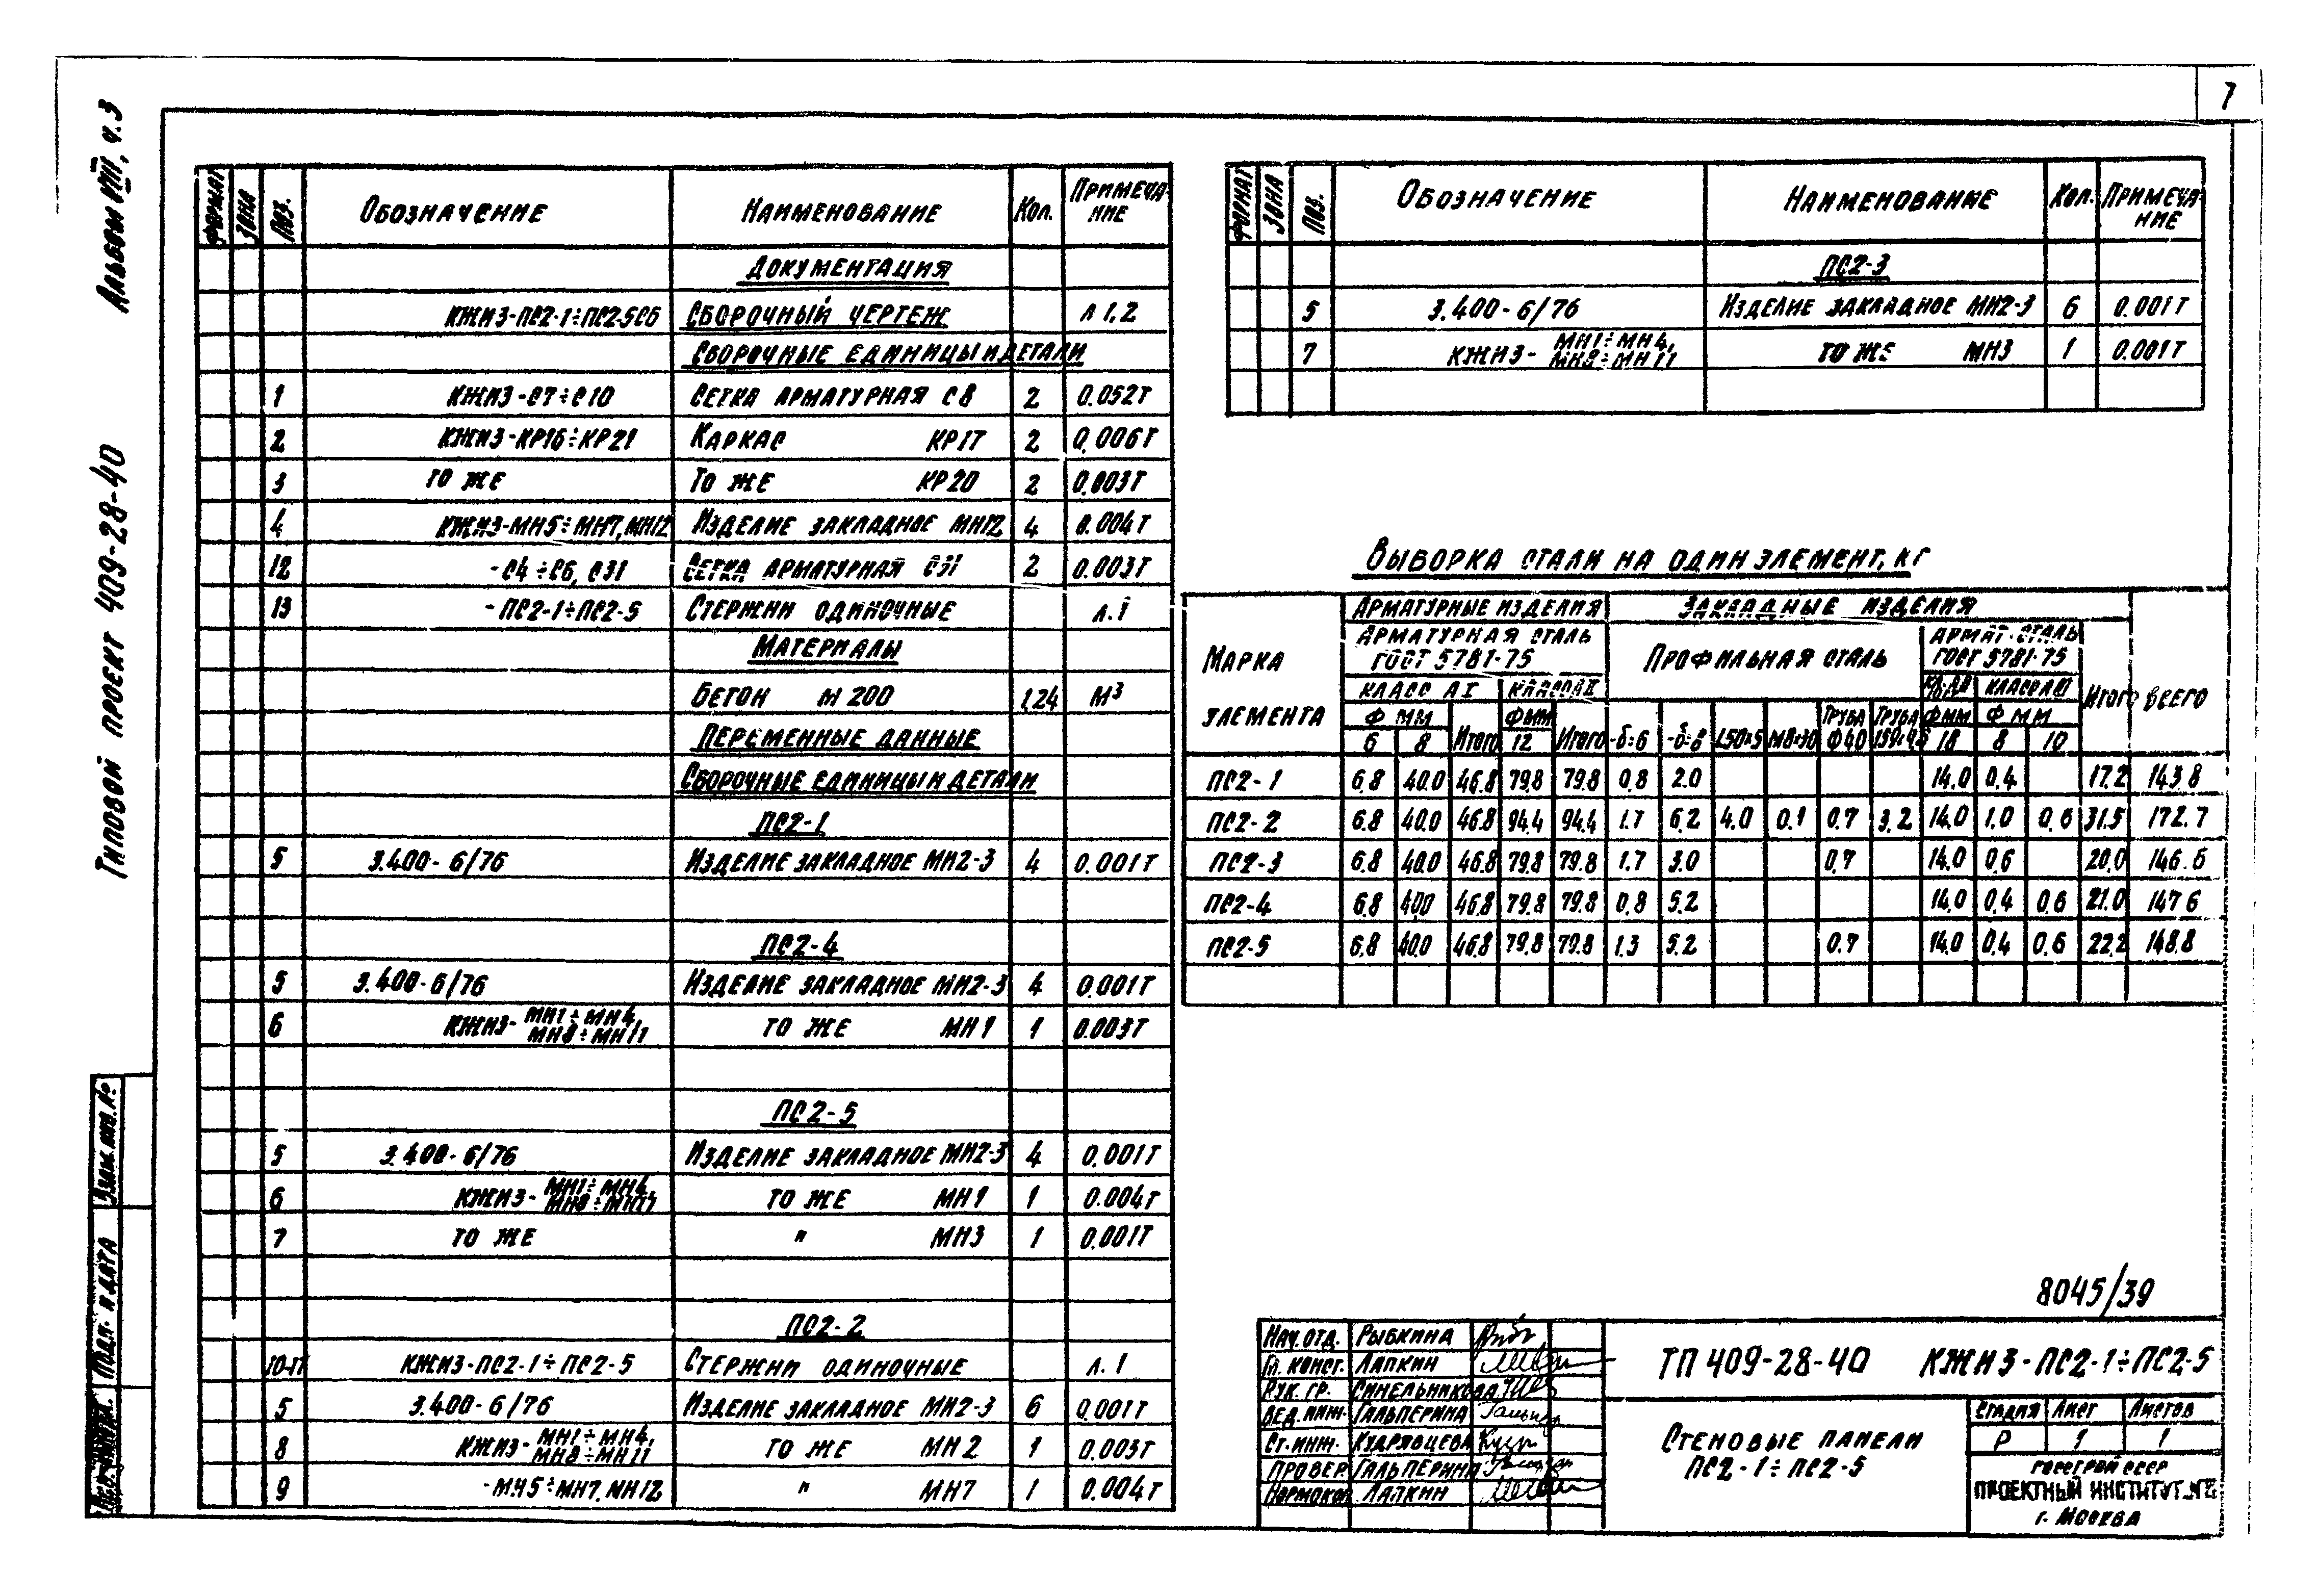 7
Альбом VIII, ч.3
Типовой проект 409-28-40
Формат Зона Поз. Обозначение Наименование Кол. Примечание
Документация
КЖИ3-ПС2-1÷ПС2-5СБ Сборочный чертеж л 1,2
Сборочные единицы и детали
1 КЖИ3-С7÷С10 Сетка арматурная С8 2 0.052т
2 КЖИ3-КР16÷КР21 Каркас КР17 2 0.006т
3 то же То же КР20 2 0.003т
4 КЖИ3-МН5÷МН7, МН12 Изделие закладное МН12 4 0.004т
12 -С4÷С6, С31 Сетка арматурная С31 2 0.003т
13 -ПС2-1÷ПС2-5 Стержни одиночные л.1
Материалы
Бетон М 200 1,24 м³
Переменные данные
Сборочные единицы и детали
ПС2-1
5 3.400-6/76 Изделие закладное МН2-3 4 0.001т
ПС2-4
5 3.400-6/76 Изделие закладное МН2-3 4 0.001т
6 КЖИ3-МН1÷МН4, МН8÷МН11 то же МН1 1 0.003т
ПС2-5
5 3.400-6/76 Изделие закладное МН2-3 4 0.001т
6 КЖИ3-МН1÷МН4, МН8÷МН11 то же МН1 1 0.004т
7 то же " МН3 1 0.001т
ПС2-2
10-11 КЖИ3-ПС2-1÷ПС2-5 Стержни одиночные л.1
5 3.400-6/76 Изделие закладное МН2-3 6 0.001т
8 КЖИ3-МН1÷МН4, МН8÷МН11 то же МН2 1 0.003т
9 -МН5÷МН7, МН12 " МН7 1 0.004т
Формат Зона Поз. Обозначение Наименование Кол. Примечание
ПС2-3
5 3.400-6/76 Изделие закладное МН2-3 6 0.001т
7 КЖИ3-МН1÷МН4, МН8÷МН11 то же МН3 1 0.001т
Выборка стали на один элемент, кг
Марка элемента Арматурные изделия Закладные изделия Всего
Арматурная сталь ГОСТ 5781-75 Профильная сталь Армат. сталь ГОСТ 5781-75 Итого
Класс АI Класс АII Класс АIII
Ф мм Итого Фмм Итого -δ=6 -δ=8 L50×5 М8×30 Труба Ф40 Труба Фмм Ф мм
6 8 12 18 8 10
ПС2-1 6.8 40.0 46.8 79.8 79.8 0.8 2.0 14.0 0.4 17.2 143.8
ПС2-2 6.8 40.0 46.8 94.4 94.4 1.7 6.2 4.0 0.1 0.7 3.2 14.0 1.0 0.6 31.5 172.7
ПС2-3 6.8 40.0 46.8 79.8 79.8 1.7 3.0 0.7 14.0 0.6 20.0 146.6
ПС2-4 6.8 40.0 46.8 79.8 79.8 0.8 5.2 14.0 0.4 0.6 21.0 147.6
ПС2-5 6.8 40.0 46.8 79.8 79.8 1.3 5.2 0.7 14.0 0.4 0.6 22.2 148.8
8045/39
Нач. отд. Рыбкина
Гл. конст. Лапкин
Рук. гр. Синельникова
Вед. инж. Гальперина
Ст. инж. Кудрявцева
Провер. Гальперина
Нормокон. Лапкин
ТП 409-28-40 КЖИ3-ПС2-1÷ПС2-5
Стеновые панели
ПС2-1÷ПС2-5
Стадия Лист Листов
Р 1 1
Госстрой СССР
Проектный институт №2
г. Москва
Взам. инв. №
Подп. и дата